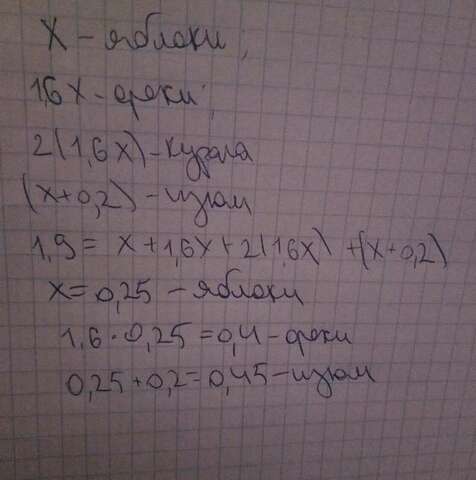 x - яблоки;
1,6x - ореки;
2(1,6x) - курага
(x+0,2) - изюм
1,9 = x + 1,6x + 2(1,6x) + (x+0,2)
x = 0,25 - яблоки
1,6 · 0,25 = 0,4 - ореки
0,25 + 0,2 = 0,45 - изюм